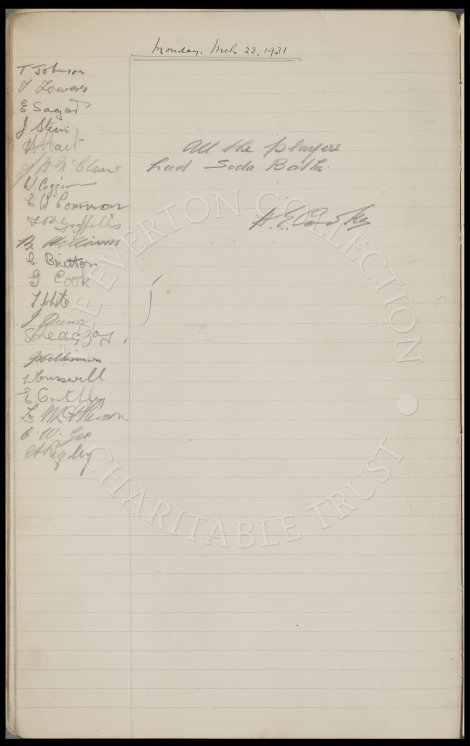 Monday. Mch 23. 1931
T Johnson
T Towers
E Sagar
J Stein
H Hart
J H McClure
W Coggins
E W Common
T H Griffiths
B Williams
C Britton
G Cook
T White
J Dunn
J Wilkinson
W Cresswell
E Critchley
L McPherson
C. W. Gee
A Rigby
All the players
had Soda Bath.
H. E. Cooke
THE EVERTON COLLECTION
CHARITABLE TRUST